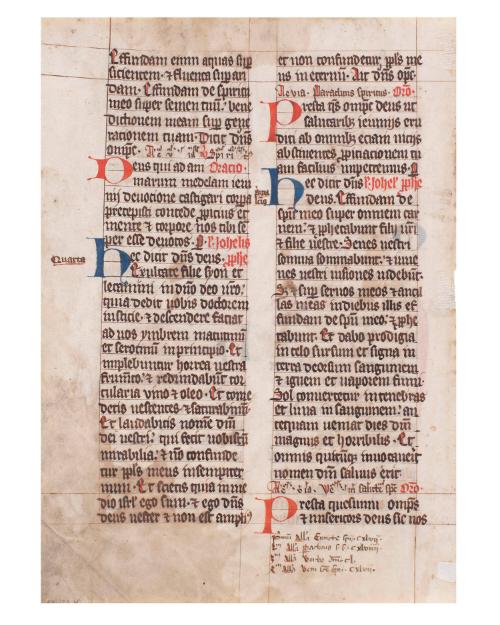 Effundam enim aquas sup
sicientem · et fluenta sup ari
dam · Effundam de spiritu
meo super semen tuū · bene
dictionem meam sup gene
rationem tuam · Dicit dn̄s
omp̄c ·
Deus qui ad am Oracio ·
marum medelam ieiu
nij deuocione castigari corpa
precepisti concede ꝓpicius et
mente et corpore nos tibi se
per esse deuotos · Johelis
Quarta
Hec dicit dn̄s deus · ꝓphe
Exultate filie syon et
letamini in dn̄o deo nr̄o ·
quia dedit vobis doctorem
iusticie · et descendere faciat
ad nos ymbrem matutinū
et serotinū in principio · Et
implebuntur horrea vestra
frumēto · et redundabūt tor
cularia vino et oleo · Et come
detis vescentes · et saturabimī ·
Et laudabitis nomē dn̄i
dei vestri · qui fecit nobiscū
mirabilia · et nō confunde
tur ppl̄s meus in sempiter
num · Et scietis quia in me
dio isrl̄ ego sum · et ego dn̄s
deus vester et non est ampliꝰ
et non confundetur ppl̄s me
us in eternū · Ait dn̄s omp̄c ·
Paraclitus spiritus · Oro ·
Presta qs̄ omp̄c deus ut
salutaribꝫ ieiunijs eru
diti ab omnibꝫ eciam vicijs
abstinentes ꝓpiciacionem tu
am facilius impetremus ·
Hec dicit dn̄s Johel' ꝓphe
deus · Effundam de
spū meo super omnem car
nem · et ꝓphetabunt filij vr̄i
et filie vestre · Senes vestri
somnia somnabunt · et iuue
nes vestri visiones videbūt ·
Sꝫ et sup seruos meos et ancil
las meas in diebus illis ef
fundam de spū meo · et ꝓphe
tabunt · Et dabo prodigia
in celo sursum et signa in
terra deorsum sanguinem
et ignem et vaporem fumi ·
Sol conuertetur in tenebras
et luna in sanguinem · an
tequam ueniat dies dn̄i
magnus et horribilis · Et
omnis quicūqꝫ inuocauerit
nomen dn̄i saluus erit
Oro ·
Presta quesumus omp̄s
et misericors deus sic nos